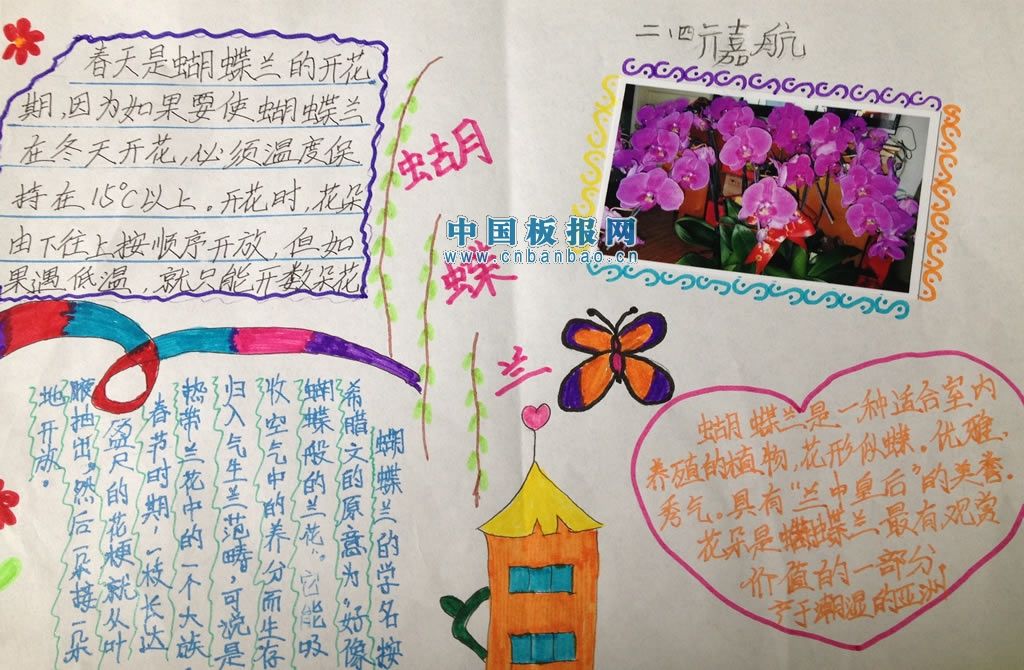 春天是蝴蝶兰的开花
期,因为如果要使蝴蝶兰
在冬天开花,必须温度保
持在15℃以上。开花时,花朵
由下往上按顺序开放,但如
果遇低温,就只能开数朵花
二四
嘉航
蝴
蝶
兰
中国板报网
www.cnbanbao.cn
蝴蝶兰的学名按
希腊文的原意为“好像
蝴蝶般的兰花”。它能吸
收空气中的养分而生存
归入气生兰范畴,可说是
热带兰花中的一个大族
春节时期,一枝长达
盈尺的花梗就从叶
腋抽出,然后一朵接一朵
地开放。
蝴蝶兰是一种适合室内
养殖的植物,花形似蝶。优雅,
秀气。具有“兰中皇后”的美誉.
花朵是蝴蝶兰最有观赏
价值的一部分,
产于潮湿的亚洲